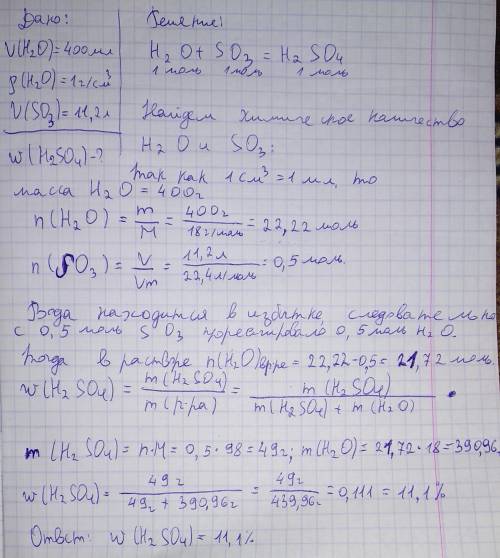 Дано:
Решение:
V(H₂O)=400мл
H₂O + SO₃ = H₂SO₄
1 моль 1 моль 1 моль
ρ(H₂O)=1г/см³
V(SO₃)=11,2л
Найдем химическое количество
w(H₂SO₄)-?
H₂O и SO₃:
Так как 1 см³=1 мл, то
масса H₂O = 400г
n(H₂O) = m/M = 400г/18г/моль = 22,22 моль
n(SO₃) = V/Vm = 11,2л/22,4л/моль = 0,5 моль.
Вода находится в избытке, следовательно
с 0,5 моль SO₃ прореагировало 0,5 моль H₂O.
Тогда в растворе n(H₂O) = 22,22-0,5 = 21,72 моль.
w(H₂SO₄) = m(H₂SO₄)/m(р-ра) = m(H₂SO₄)/m(H₂SO₄) + m(H₂O)
m(H₂SO₄) = n·M = 0,5·98 = 49г; m(H₂O) = 21,72·18 = 390,96
w(H₂SO₄) = 49г/49г + 390,96г = 49г/439,96г = 0,111 = 11,1%
Ответ: w(H₂SO₄) = 11,1%